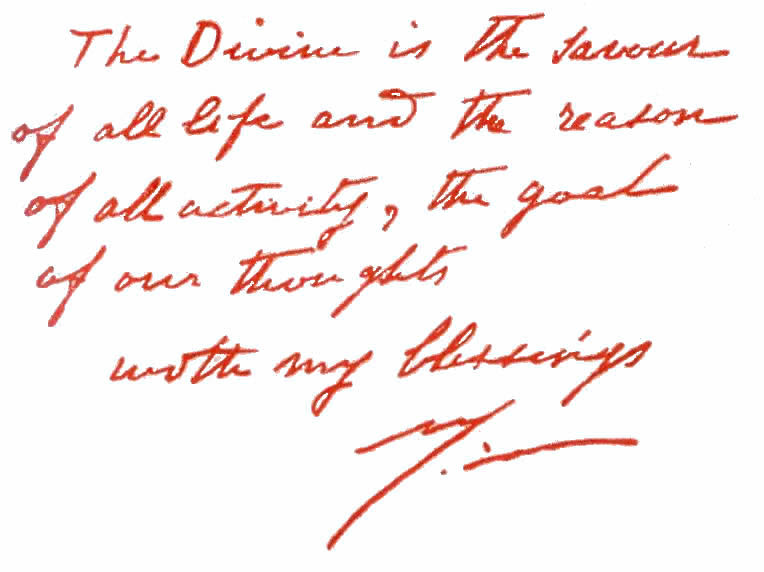 The Divine is the savour
of all life and the reason
of all activity, the goal
of our thoughts
with my blessings